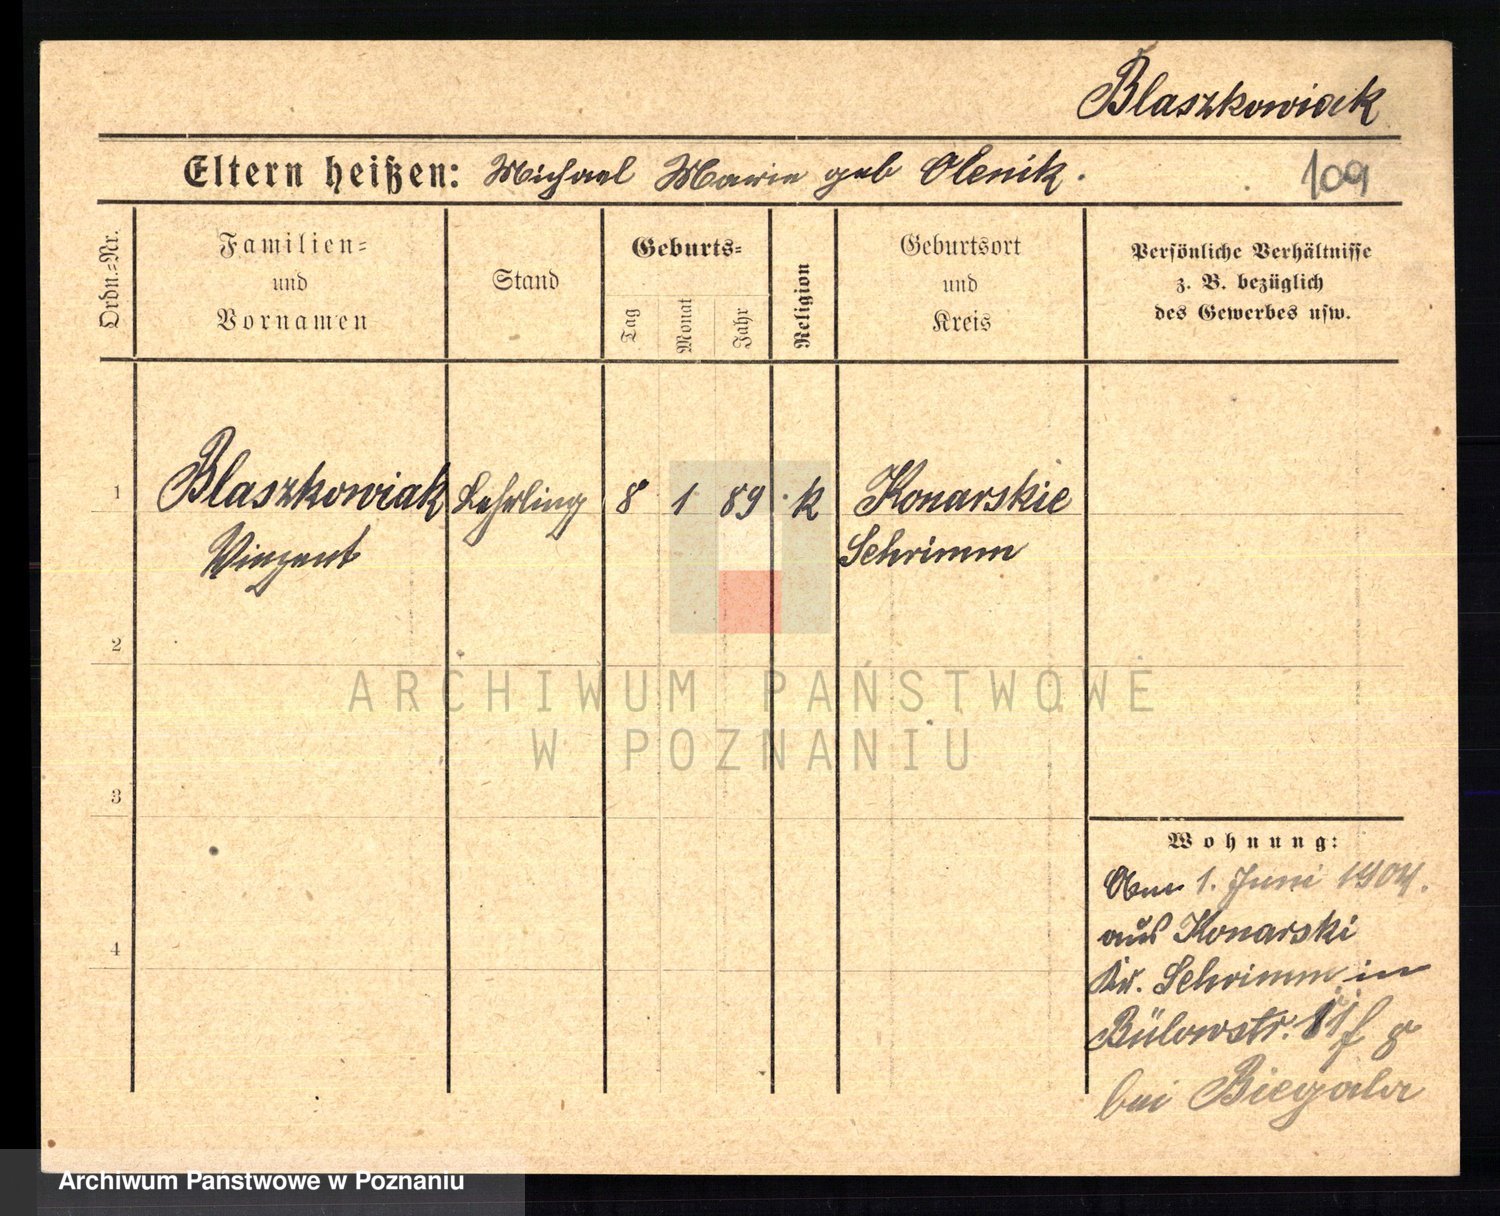 Blaszkowiak
Eltern heißen: Michael Marie geb Olenik.
109
Ordn.=Nr.
Familien=
und
Vornamen
Stand
Geburts=
Tag
Monat
Jahr
Religion
Geburtsort
und
Kreis
Persönliche Verhältnisse
z. B. bezüglich
des Gewerbes usw.
1
Blaszkowiak Lehrling 8 1 89 k Konarskie
Vinzent Schrimm
2
ARCHIWUM PAŃSTWOWE
W POZNANIU
3
Wohnung:
1. Juni 1904.
aus Konarski
4
Kr. Schrimm in
Bülowstr. 11
bei Biegala
Archiwum Państwowe w Poznaniu